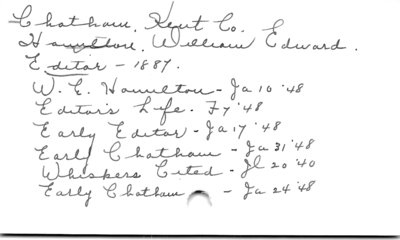 Chatham, Kent Co.
Hamilton, William Edward.
Editor - 1887.
W. E. Hamilton - Ja 10 '48
Editor's Life. F 7 '48
Early Editor - Ja 17 '48
Early Chatham - Ja 31 '48
Whispers Cited - Jl 20 '40
Early Chatham - Ja 24 '48